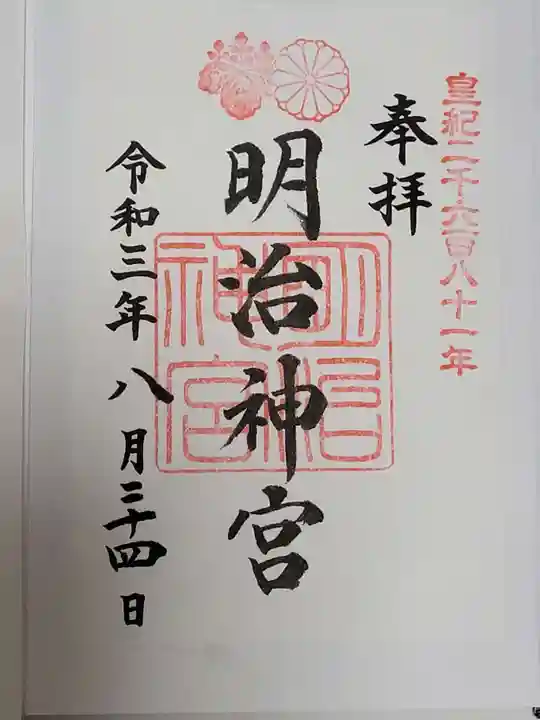 皇紀二千六百八十一年
奉拝
明治神宮
明治神宮
令和三年八月二十四日